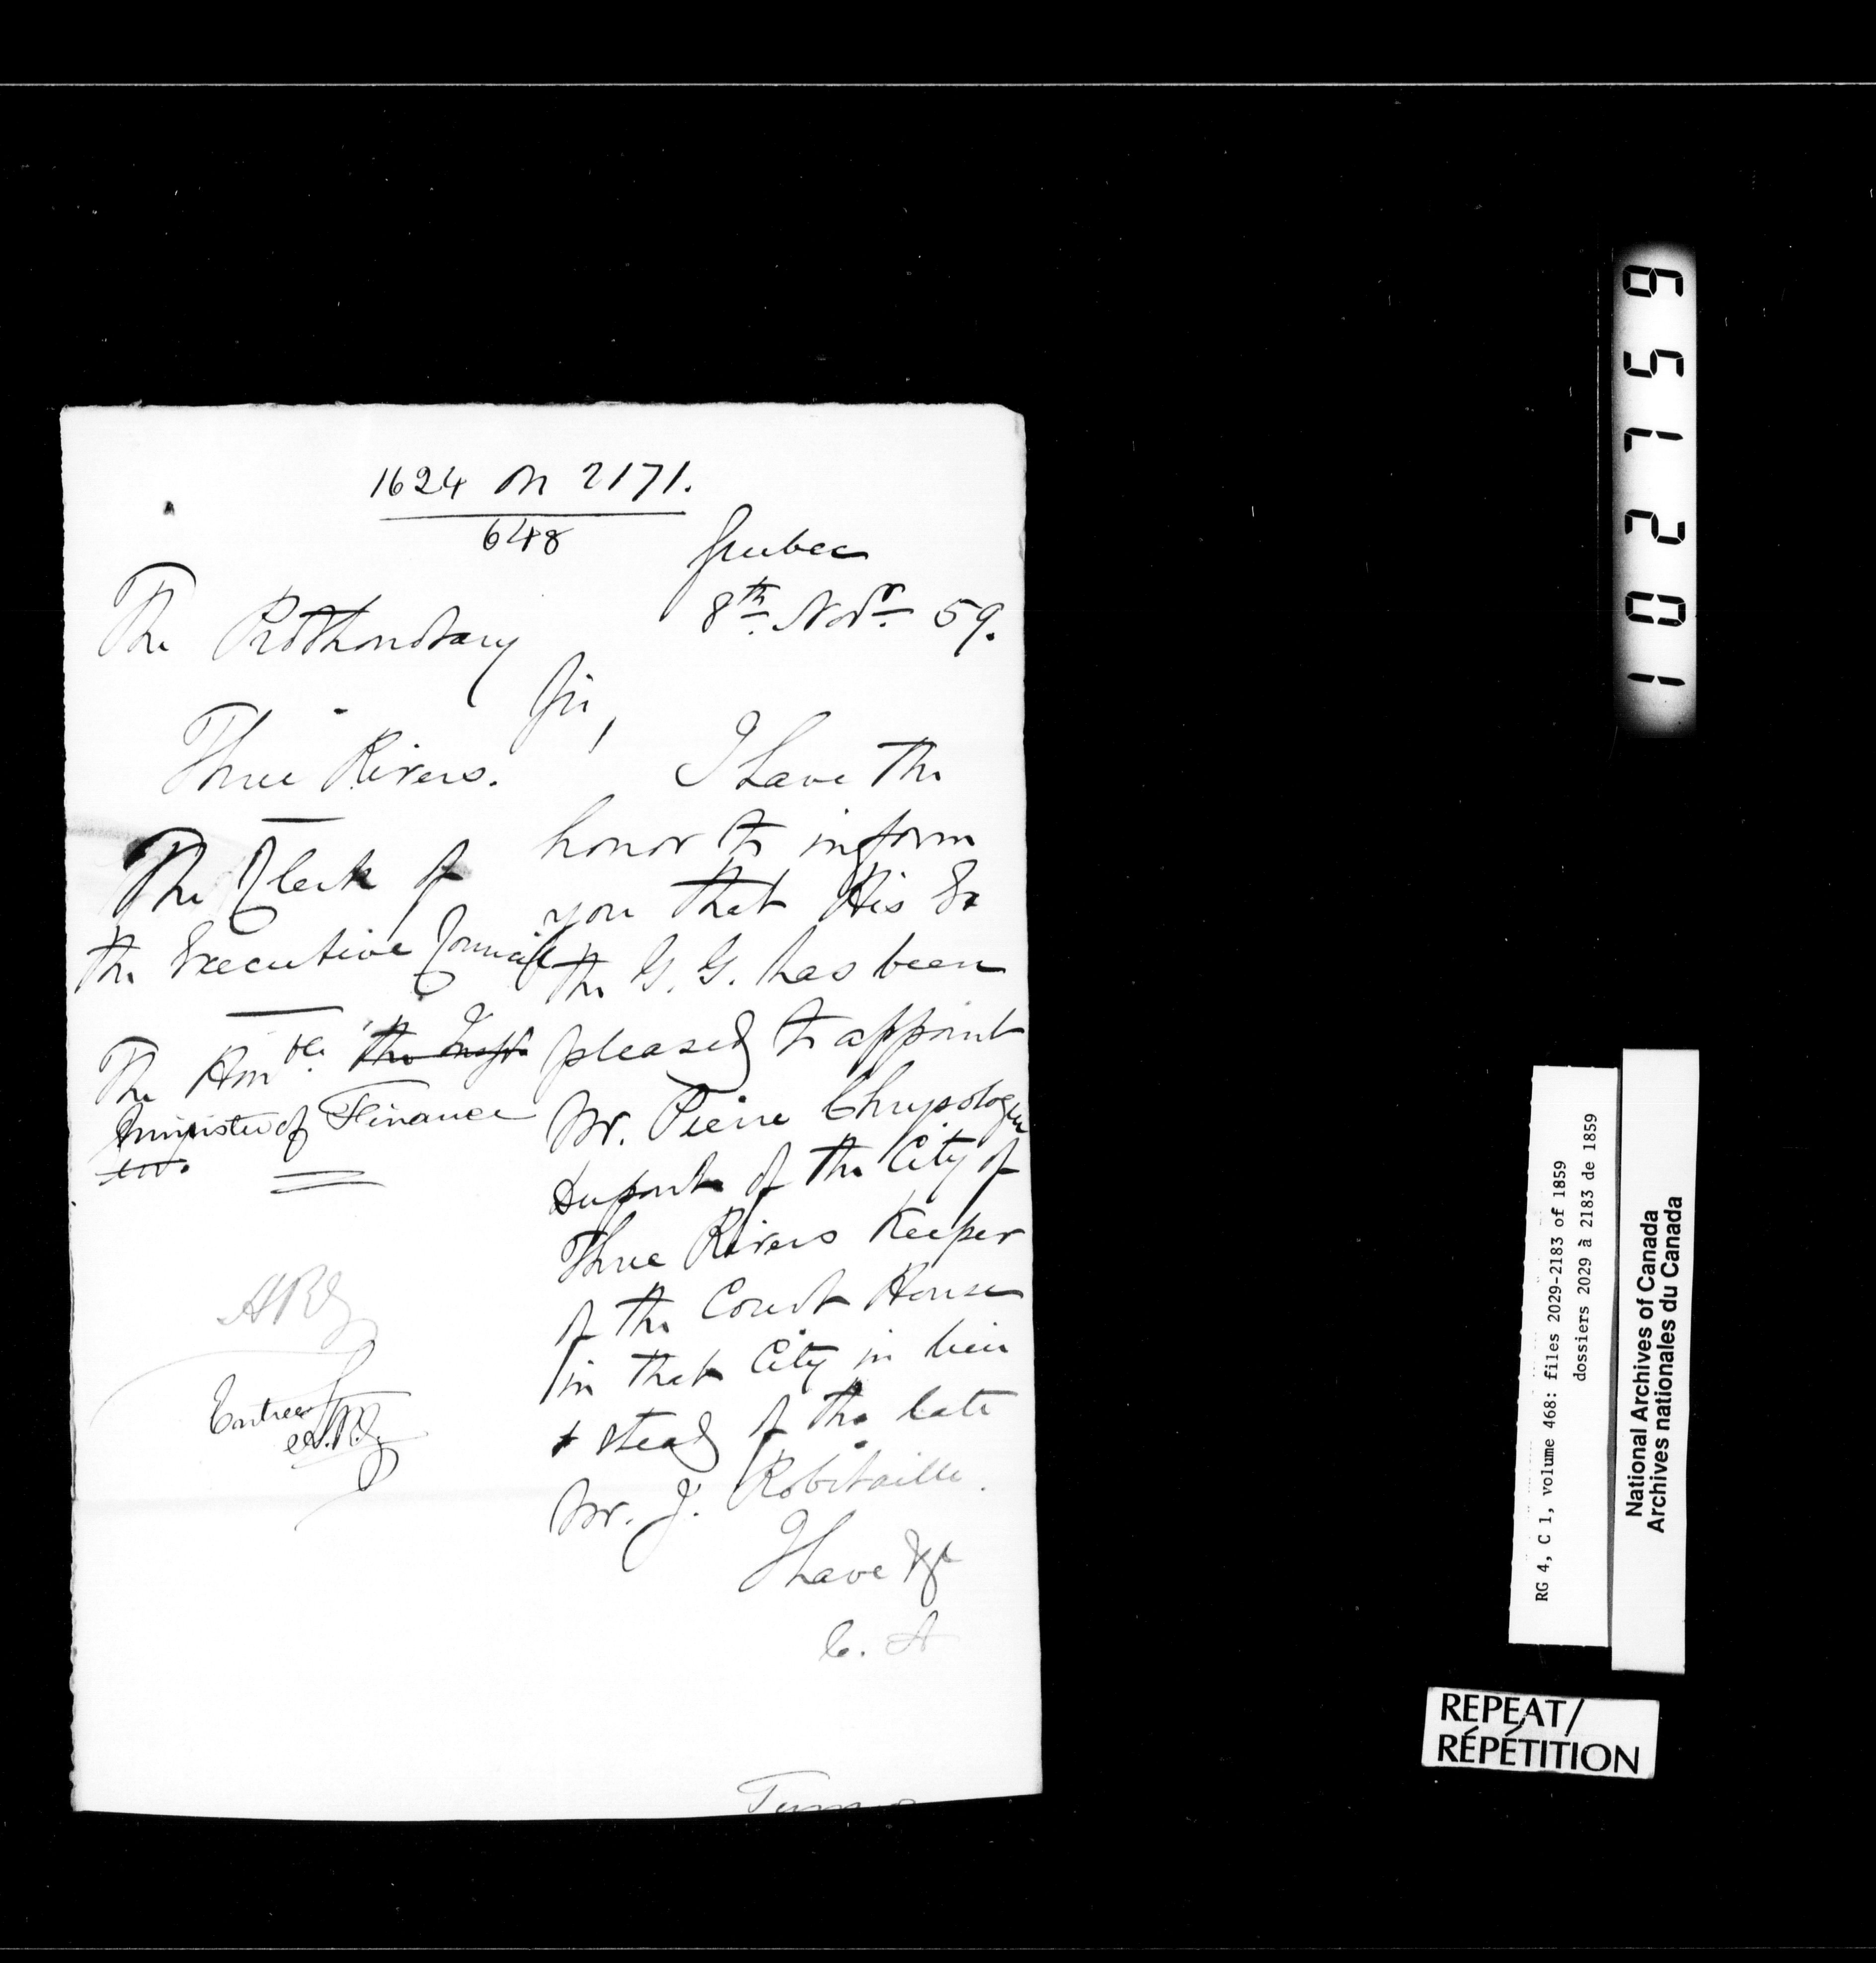 1624 on 2171.
648
Quebec
8th Novr 59.
The Prothonotary
Three Rivers.
The Clerk of
the Executive Council
The Honble. the
Minister of Finance
Sir,
I have the
honor to inform
you that His Ex
the G. G. has been
pleased to appoint
Mr. Pierre Chrysologue
Dupont of the City of
Three Rivers Keeper
of the Court House
in that City in lieu
& stead of the late
Mr. J. Robitaille.
I have &c
C. A
Entree
Turn
102759
RG 4, C 1, volume 468: files 2029-2183 of 1859
dossiers 2029 à 2183 de 1859
National Archives of Canada
Archives nationales du Canada
REPEAT/
RÉPÉTITION